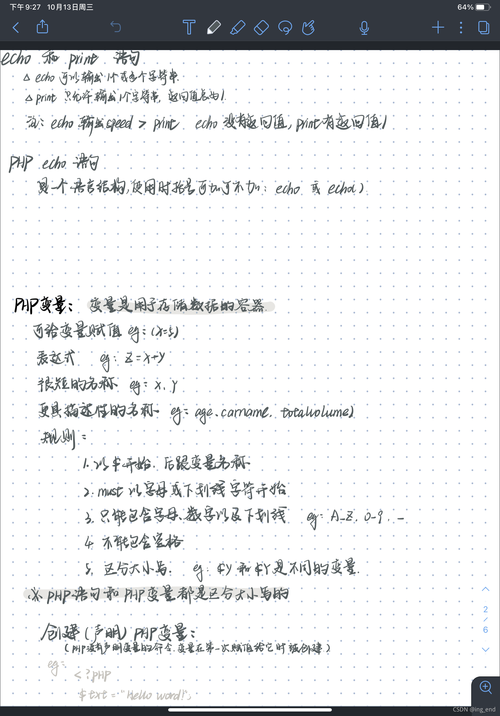 下午9:27 10月13日周三
64%
echo 和 print 语句
△ echo 可以输出1个或多个字符串.
△ print 只允许输出1个字符串, 返回值总为1.
注: echo 输出speed > print. echo 没有返回值, print有返回值1
PHP echo 语句
是一个语言结构, 使用时括号可加可不加: echo 或 echo()
PHP变量: 变量是用于存储数据的容器.
可给变量赋值 eg: (x=5)
表达式 eg: z=x+y
很短的名称 eg: x, y
更具描述性的名称 eg: age、carname、totalvolume)
规则:
1. 以$开始, 后跟变量名称
2. must 以字母或下划线字符开始
3. 只能包含字母、数字以及下划线 eg: A_Z、0_9、_
4. 不能包含空格
5. 区分大小写. eg: $Y 和 $y 是不同的变量.
※ PHP语句和PHP变量都是区分大小写的
创建(声明) PHP变量:
(PHP没有声明变量的命令, 变量在第一次赋值给它时被创建)
eg:
<?PHP
$txt="Hello word!";
2
6
CSDN @ing_end